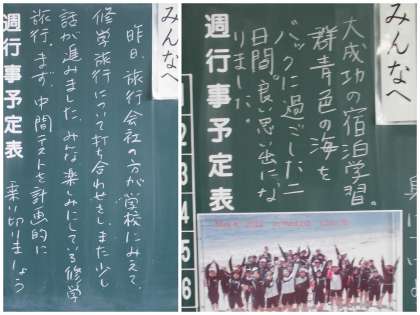 みんなへ
昨日、旅行会社の方が学校にみえて、
修学旅行について打ち合わせをし、また少し
話が進みました。みんな楽しみにしている修学
旅行。まず、中間テストを計画的に
乗り切りましょう
週行事予定表
みんなへ
大成功の宿泊学習。
群青色の海を
バックに過ごした二
日間。良い思い出にな
りました。
週行事予定表
1
2
3
4
5
6